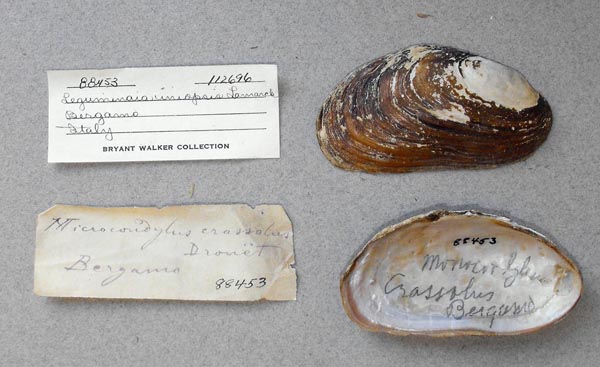 88453 112696
Leguminaia Lamarck
Bergamo
Italy
BRYANT WALKER COLLECTION
Microcondylus crassulus
Drouët
Bergamo
88453
88453
Crassulus
Bergamo